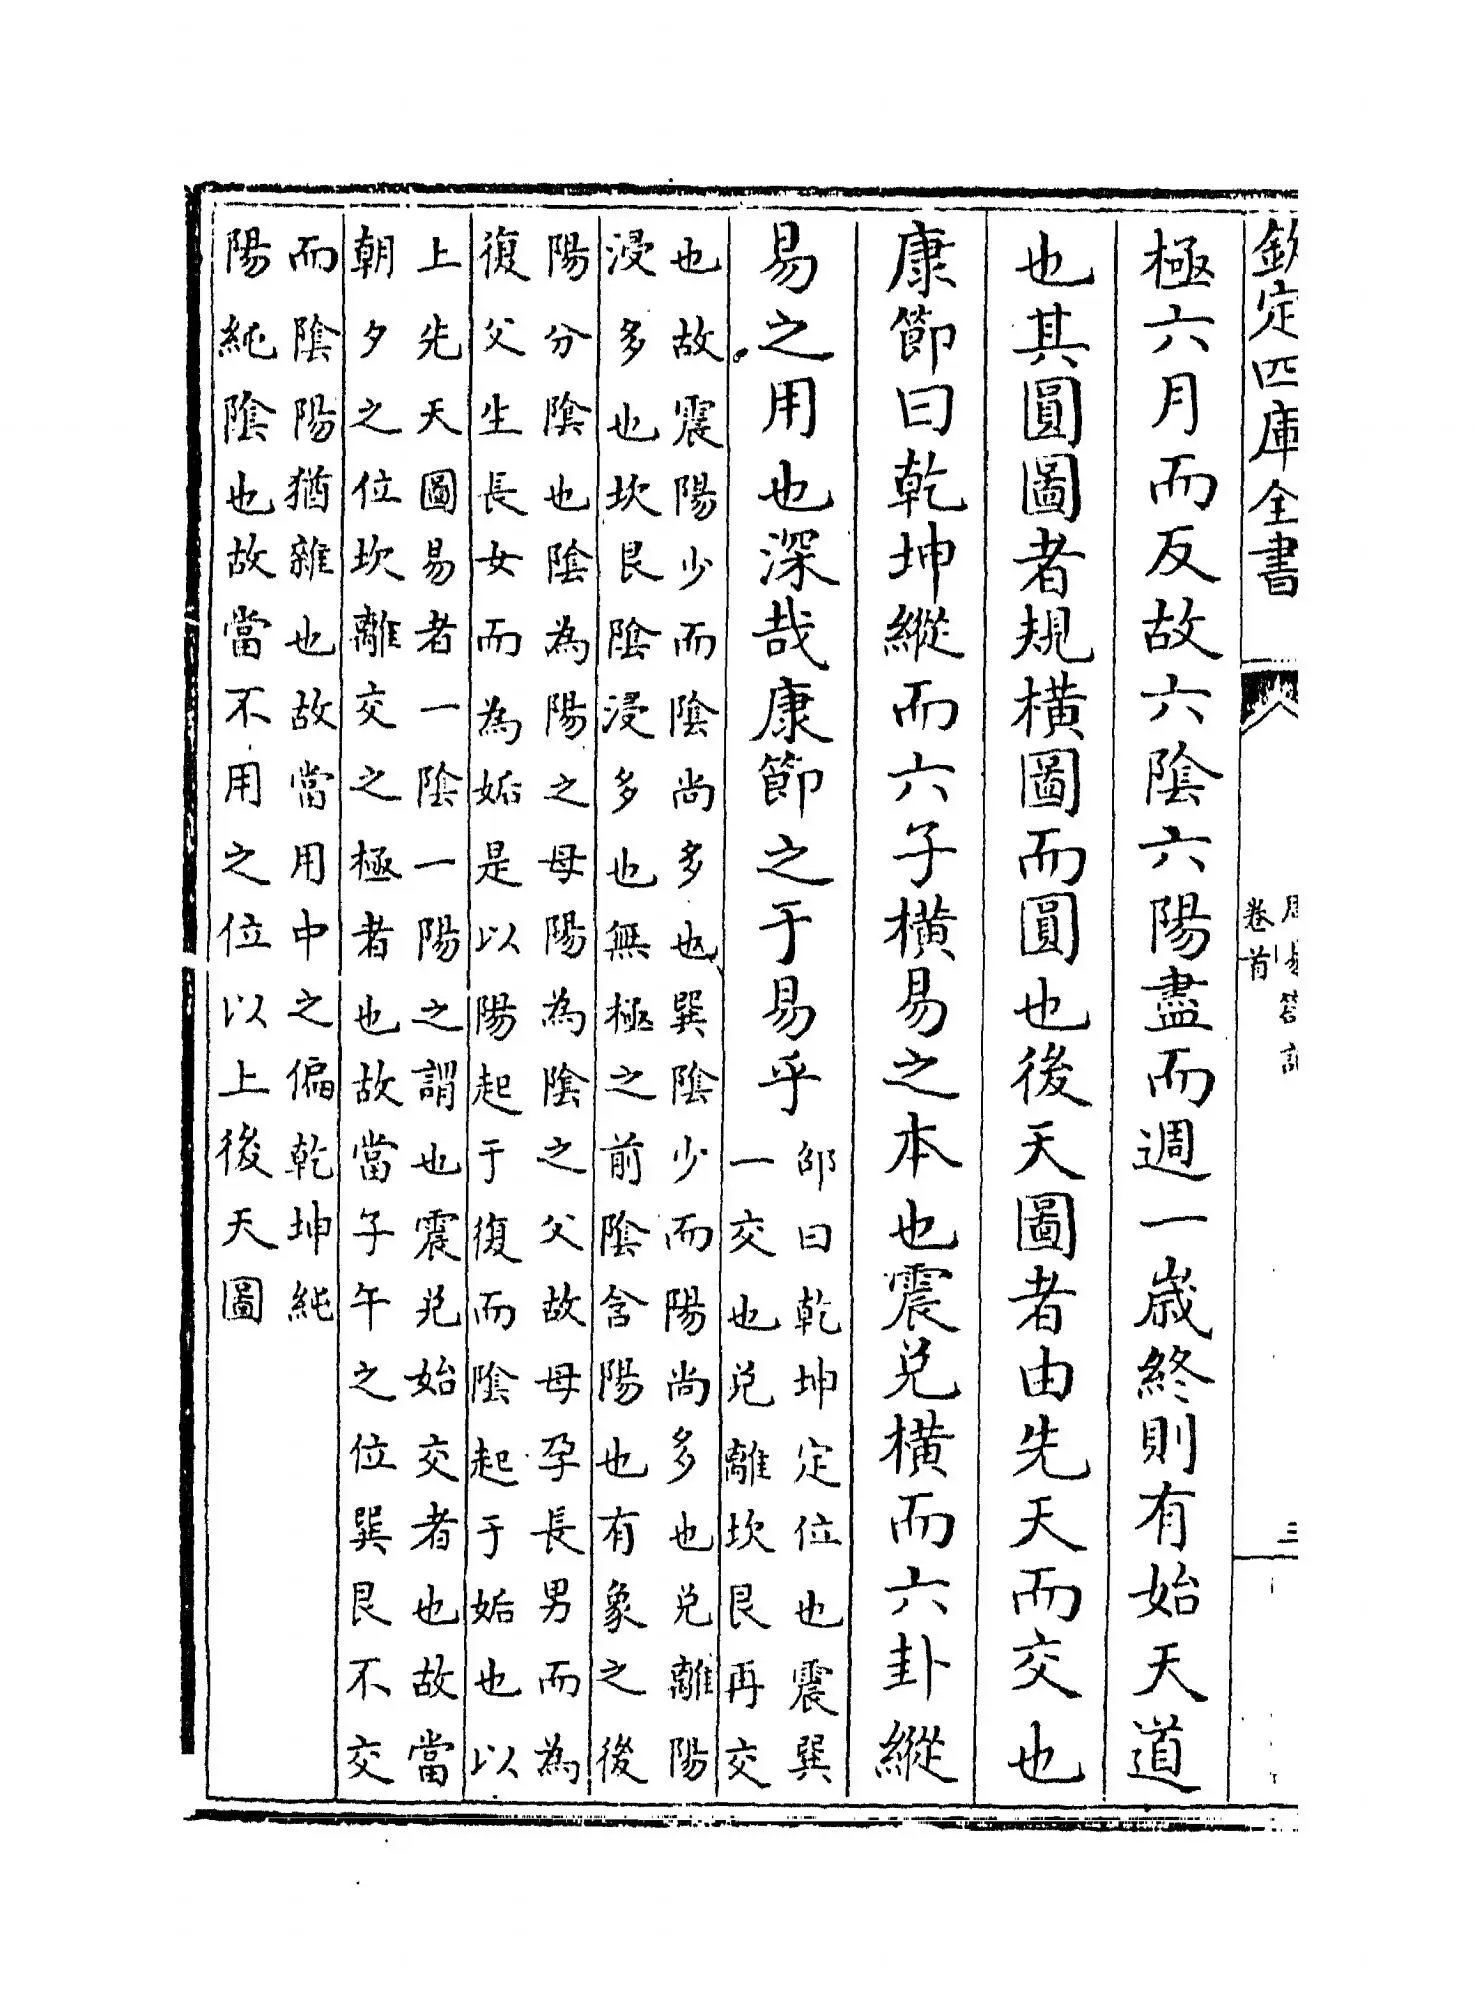 欽定四庫全書
周易劄記
卷首
三
極六月而反故六陰六陽盡而週一歲終則有始天道
也其圓圖者規橫圖而圓也後天圖者由先天而交也
康節曰乾坤縱而六子橫易之本也震兌橫而六卦縱
易之用也深哉康節之于易乎
邵曰乾坤定位也震巽
一交也兌離坎艮再交
也故震陽少而陰尚多也巽陰少而陽尚多也兌離陽
浸多也坎艮陰浸多也無極之前陰含陽也有象之後
陽分陰也陰為陽之母陽為陰之父故母孕長男而為
復父生長女而為姤是以陽起于復而陰起于姤也以
上先天圖易者一陰一陽之謂也震兌始交者也故當
朝夕之位坎離交之極者也故當子午之位巽艮不交
而陰陽猶雜也故當用中之偏乾坤純
陽純陰也故當不用之位以上後天圖